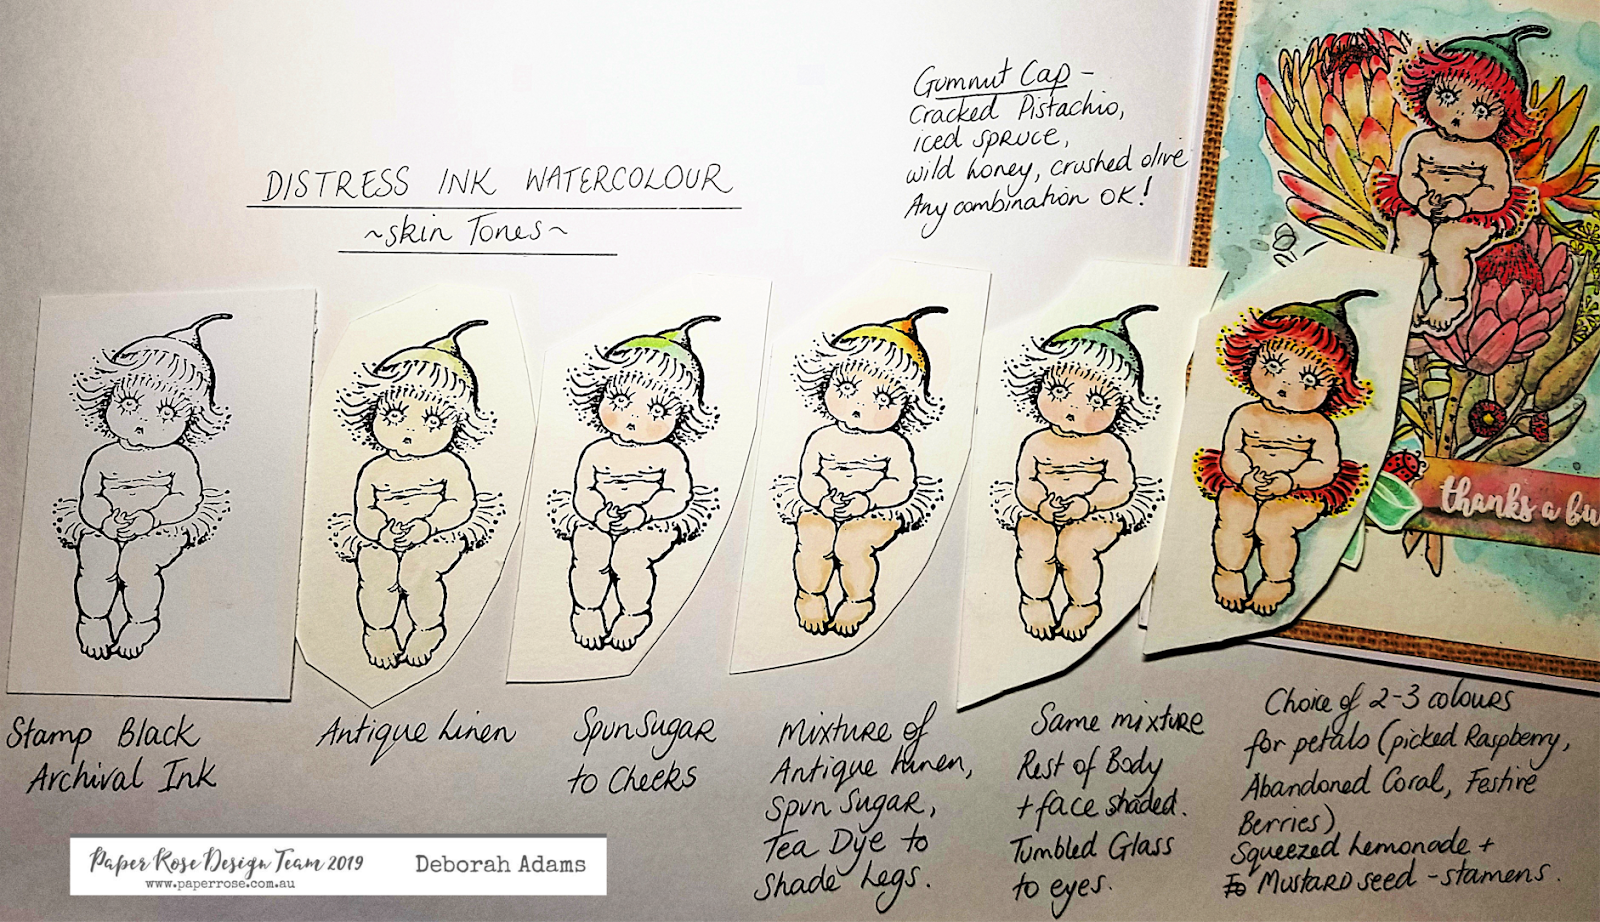 DISTRESS INK WATERCOLOUR
~Skin Tones~
Gumnut Cap -
Cracked Pistachio,
iced spruce,
wild honey, crushed olive
Any combination OK!
thanks a bu
Stamp Black
Archival Ink
Antique Linen
Spun Sugar
to Cheeks
Mixture of
Antique Linen,
Spun Sugar,
Tea Dye to
Shade Legs.
Same mixture
Rest of Body
+ face shaded.
Tumbled Glass
to eyes.
Choice of 2-3 colours
for petals (picked Raspberry,
Abandoned Coral, Festive
Berries)
Squeezed Lemonade +
Mustard seed - stamens.
Paper Rose Design Team 2019
www.paperrose.com.au
Deborah Adams